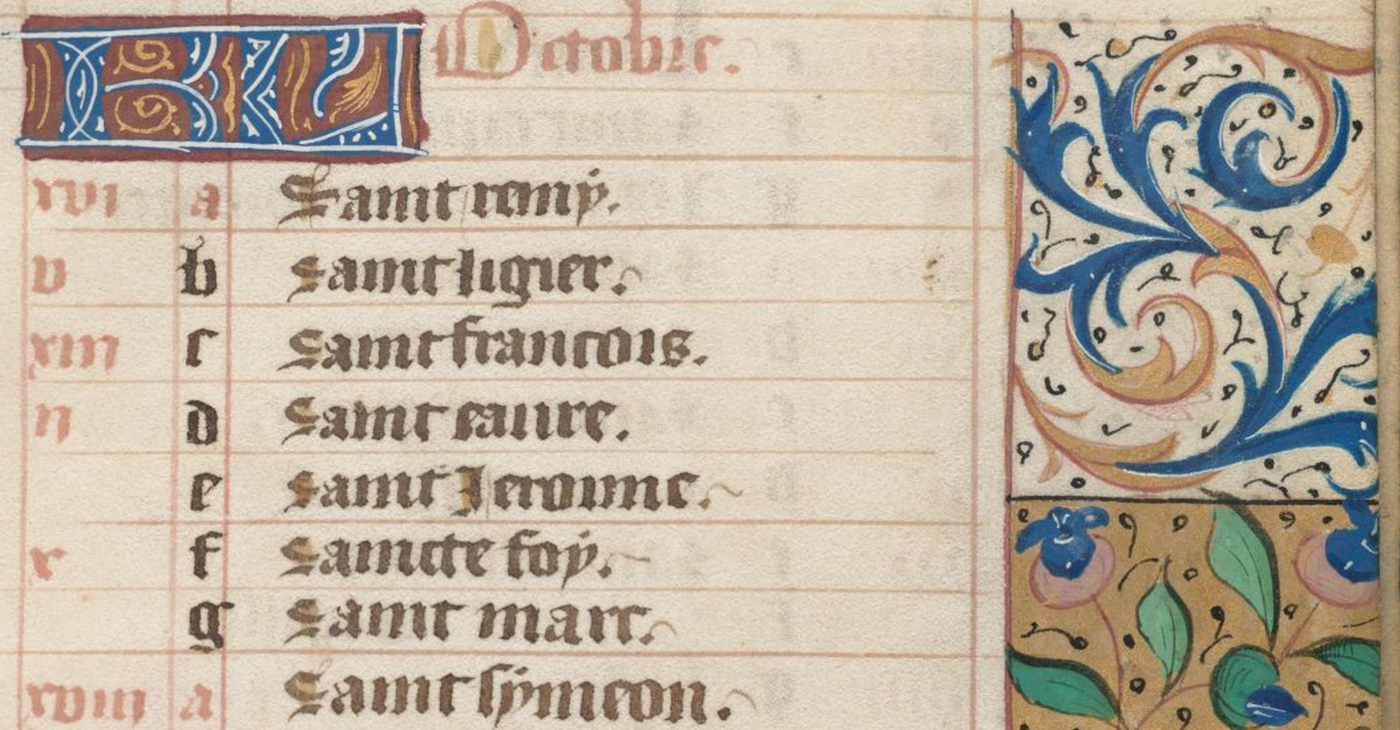 KL Octobre.
xvi a Saint remy.
v b Saint ligier.
xiii c Saint francois.
ii d Saint caure.
e Saint Jeroime.
f Saincte foy.
x
g Saint marc.
xviii a Saint symeon.